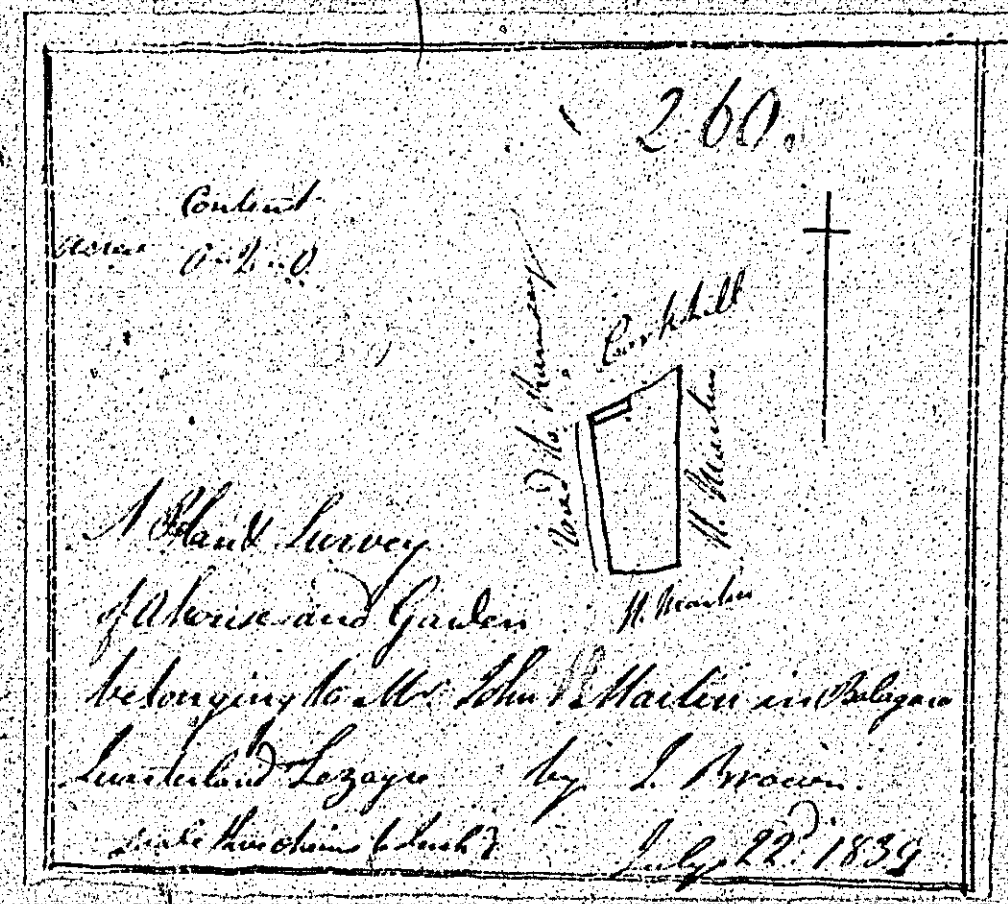 260.
Content
acres 0"2"0
Road to Ramsey
Corkhill
H. Martin
H. Martin
A Plan & Survey
of A house and Garden
belonging to Mr. John Martin in Balagaw
Lezayre by J. Brown.
Scale three chains to Inch
July 22d 1839